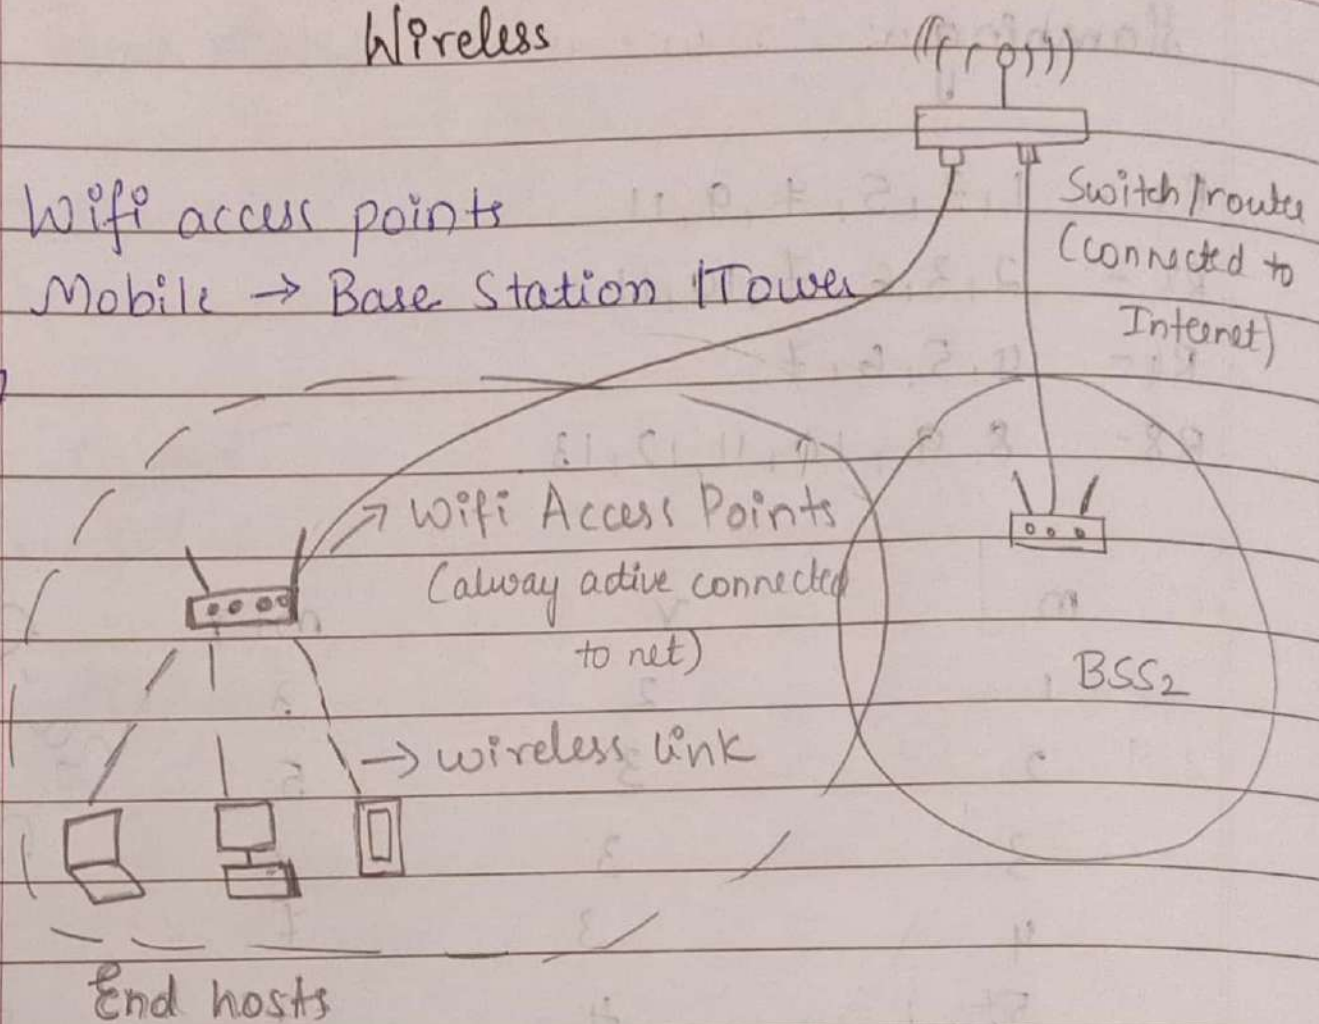 Wireless
Wifi access points
Mobile → Base Station / Tower
Switch / router
(connected to
Internet)
→ Wifi Access Points
(alway active connected
to net)
BSS2
→ wireless link
End hosts